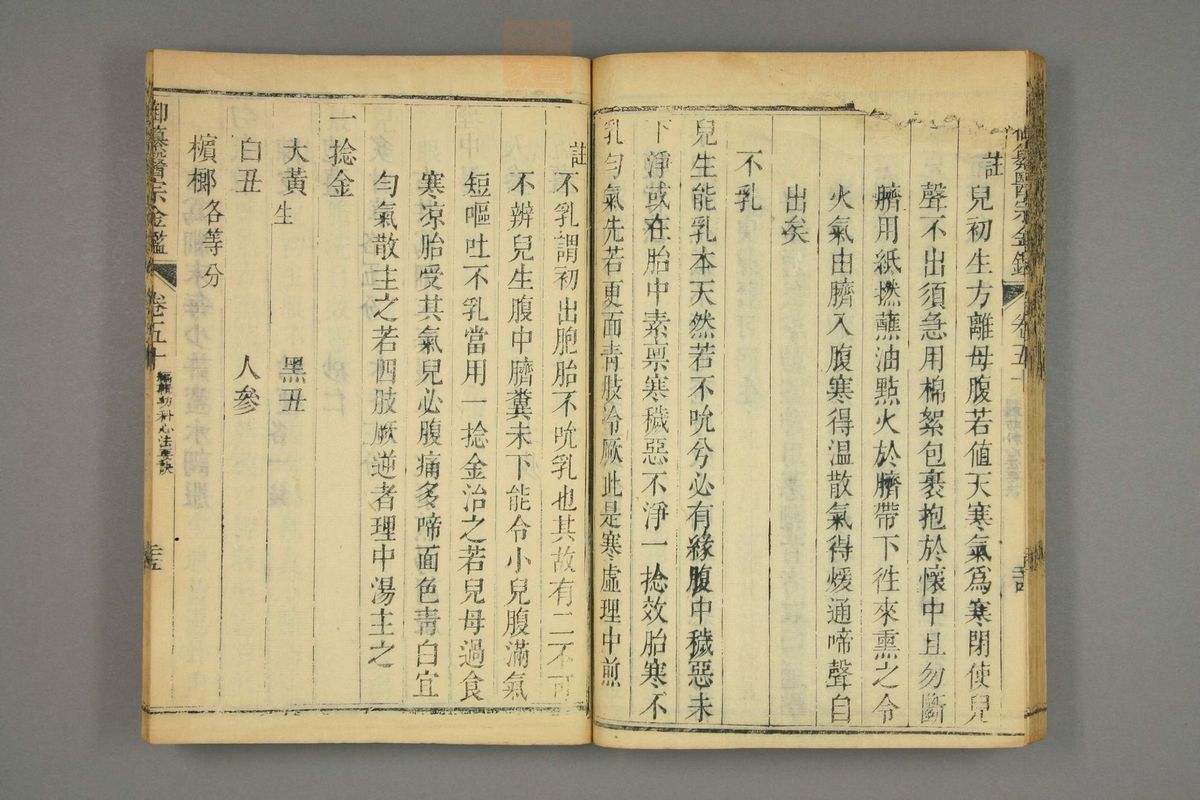 註兒初生方離母腹若值天寒氣爲寒閉使兒
聲不出須急用棉絮包裹抱於懷中且勿斷
臍用紙撚蘸油點火於臍帶下徃來熏之令
火氣由臍入腹寒得温散氣得煖通啼聲自
出矣
不乳
兒生能乳本天然若不吮兮必有緣腹中穢惡未
下淨或在胎中素禀寒穢惡不淨一捻效胎寒不
乳勻氣先若更面青肢冷厥此是寒虛理中煎
註不乳謂初出胞胎不吮乳也其故有二不可
不辨兒生腹中臍糞未下能令小兒腹滿氣
短嘔吐不乳當用一捻金治之若兒母過食
寒凉胎受其氣兒必腹痛多啼面色靑白宜
勻氣散主之若四肢厥逆者理中湯主之
一捻金
大黃生 黑丑
白丑 人參
檳榔各等分
御纂醫宗金鑑 卷五十 編輯幼科心法要訣